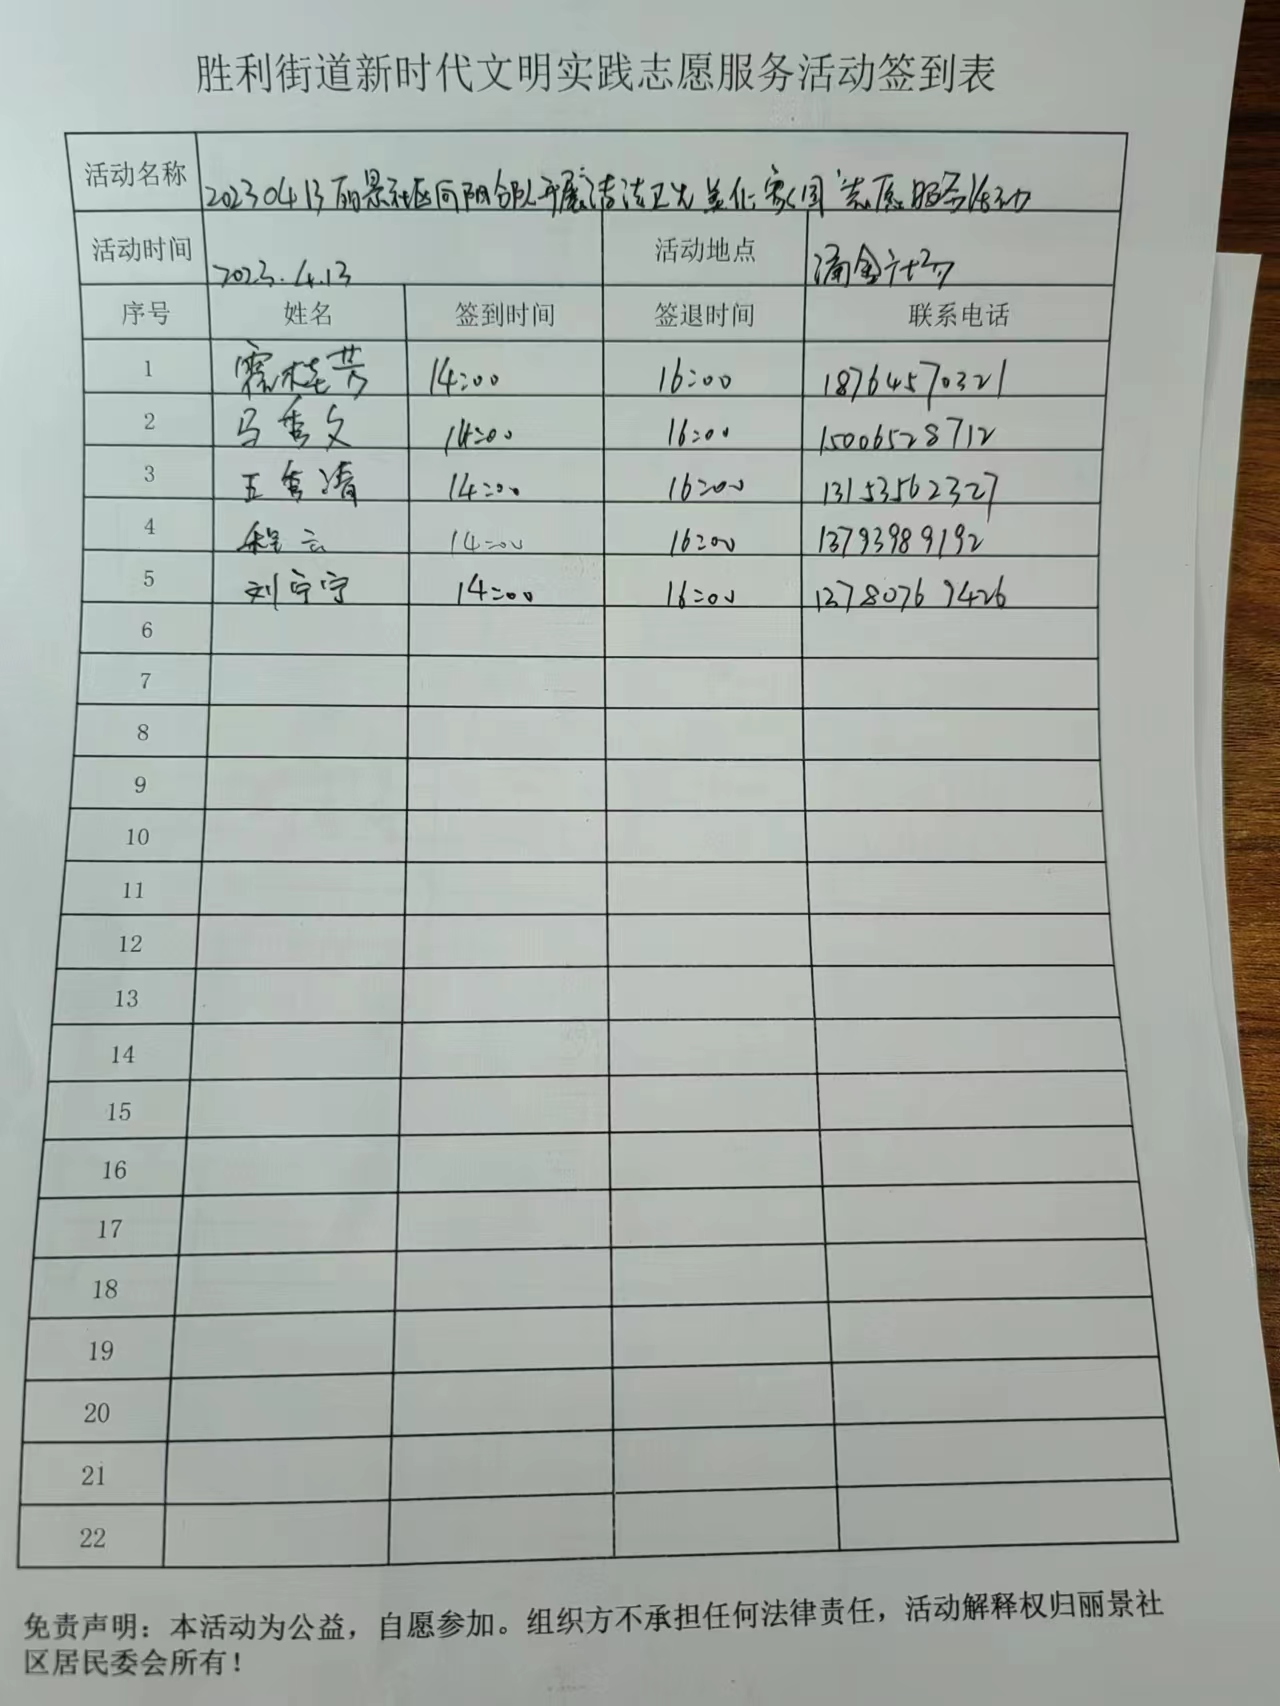 胜利街道新时代文明实践志愿服务活动签到表
活动名称 20230413丽景社区向阳合队开展清洁卫生美化家园志愿服务活动
活动时间 2023.4.13 活动地点 涌金
序号 姓名 签到时间 签退时间 联系电话
1 霍桂芳 14:00 16:00 18764570321
2 马秀文 14:00 16:00 15006528712
3 王秀清 14:00 16:00 13153562327
4 程云 14:00 16:00 13793989192
5 刘宁宁 14:00 16:00 13780767426
6
7
8
9
10
11
12
13
14
15
16
17
18
19
20
21
22
免责声明：本活动为公益，自愿参加。组织方不承担任何法律责任，活动解释权归丽景社
区居民委会所有！